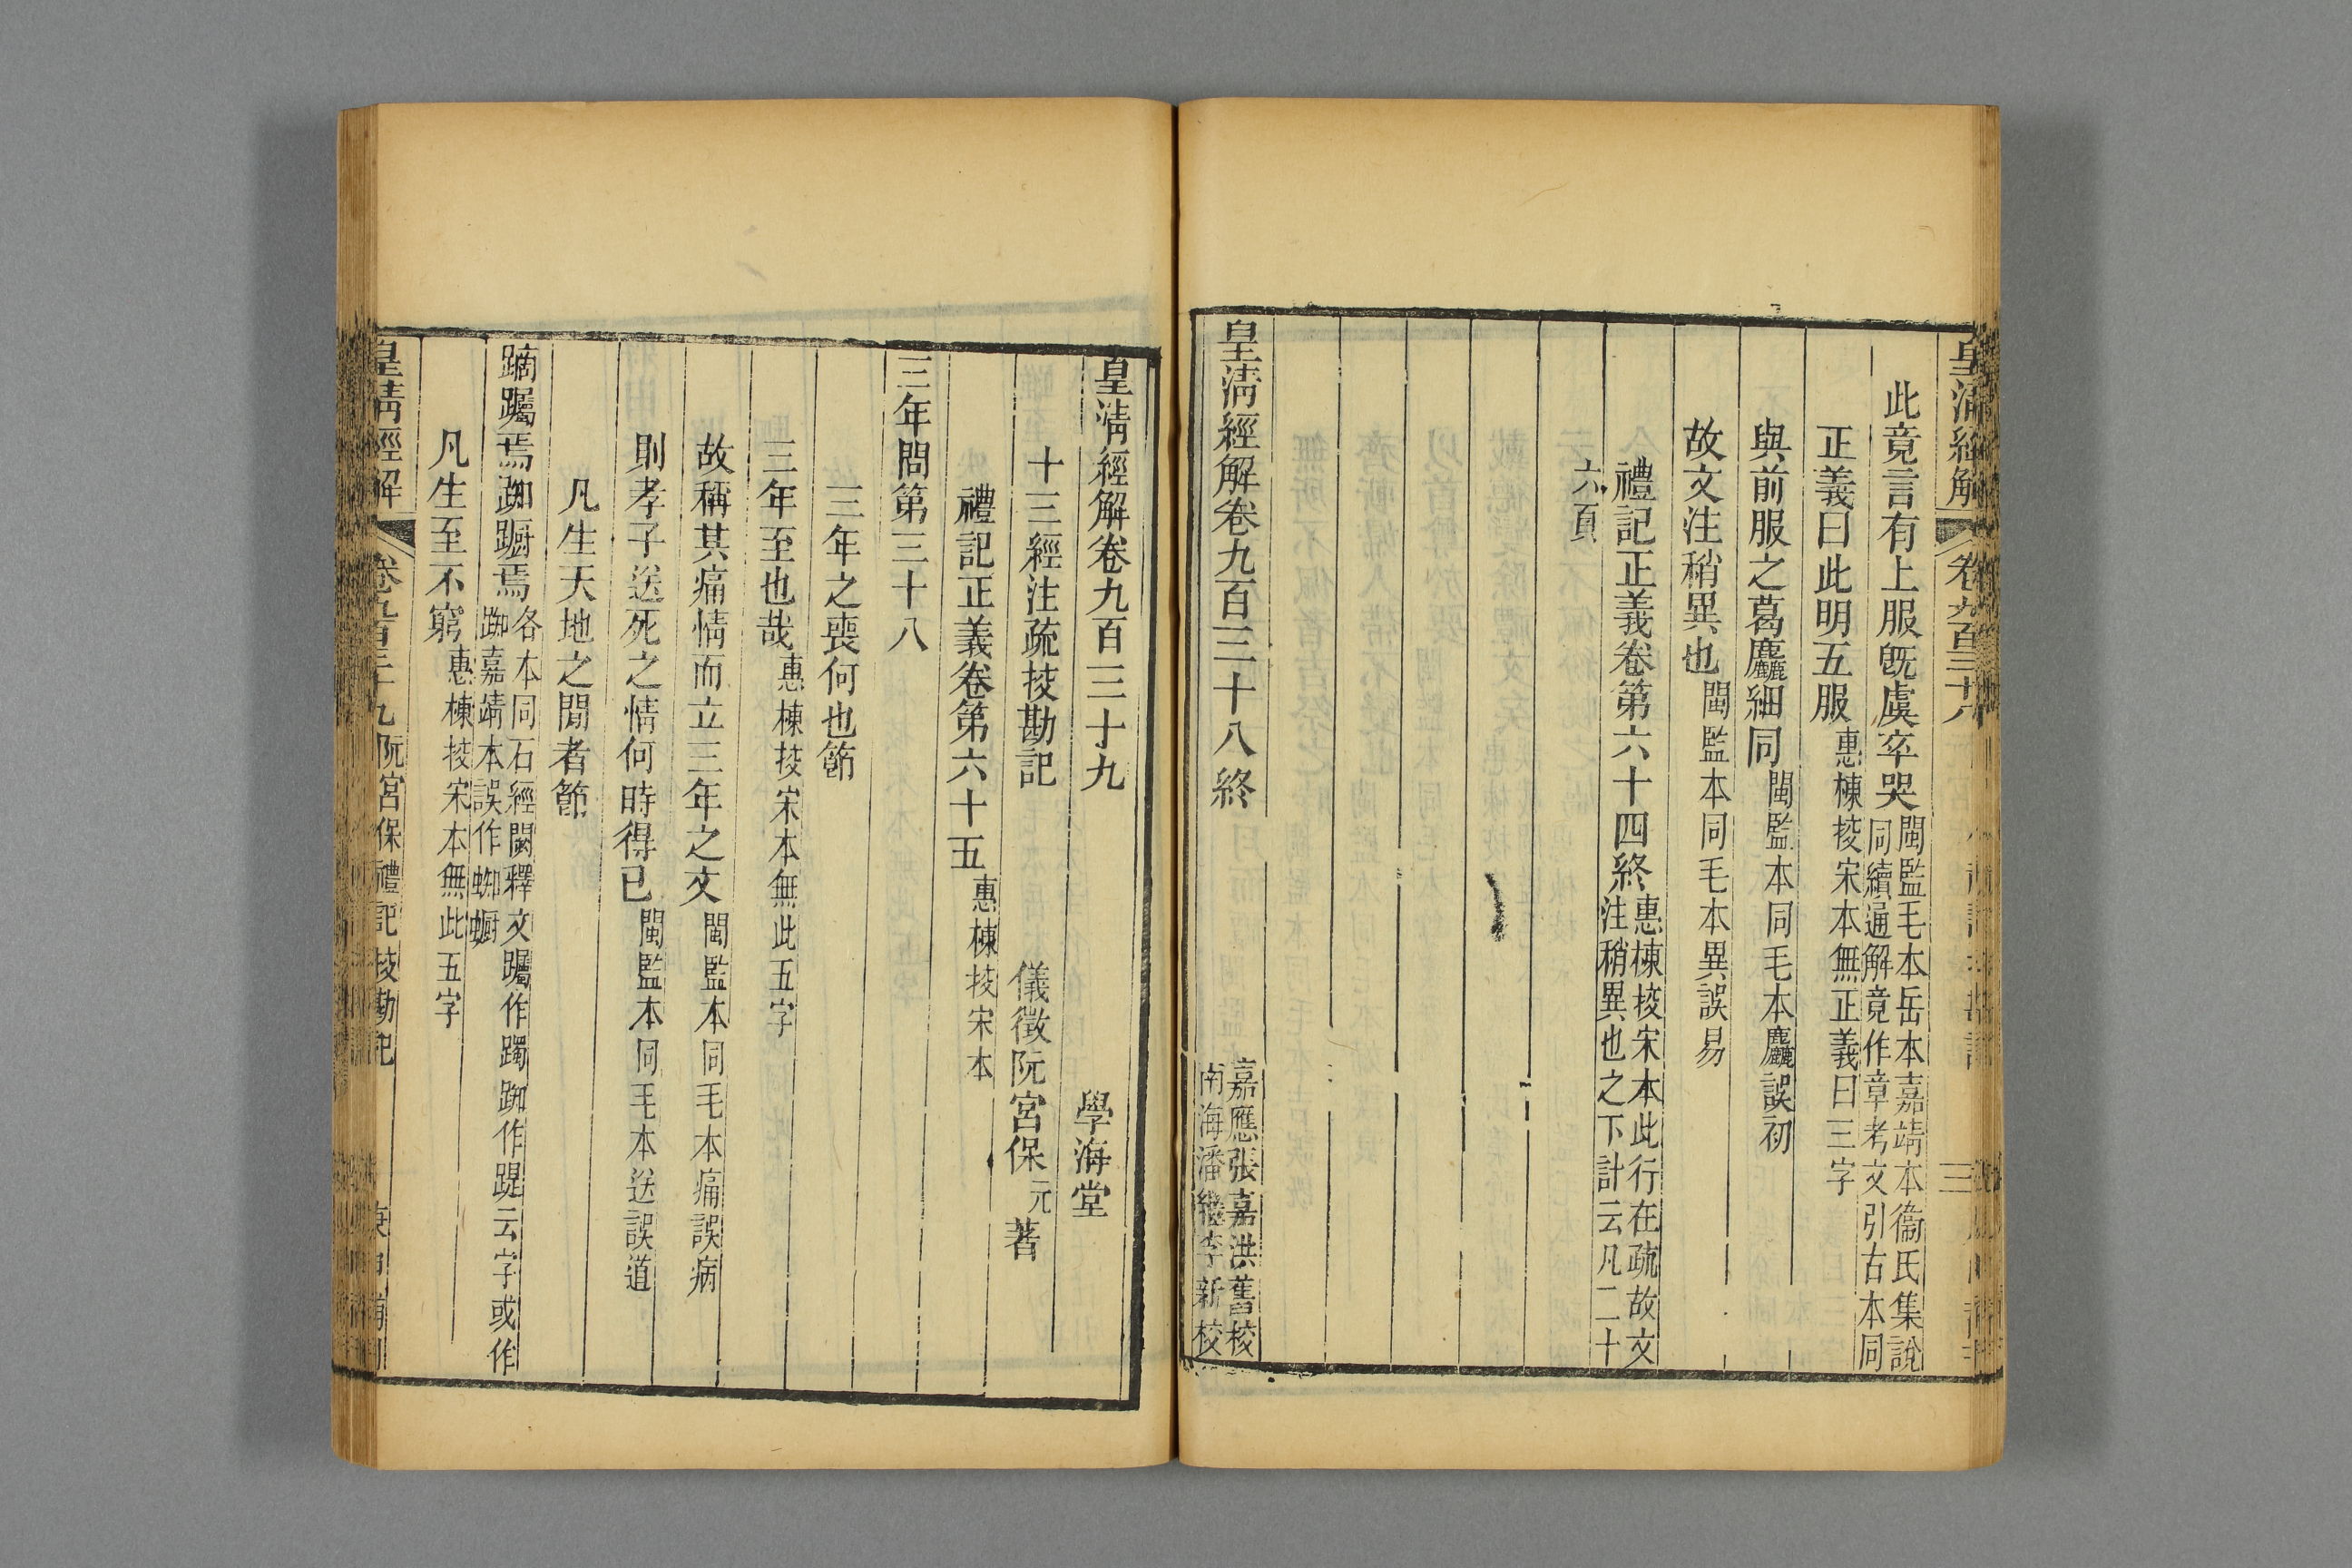 皇清經解 卷九百三十八 三
此竟言有上服旣虞卒哭閩監毛本岳本嘉靖本衞氏集說同續通解竟作章考文引古本同
正義曰此明五服惠棟挍宋本無正義曰三字
與前服之葛麤細同閩監本同毛本麤誤初
故文注稍異也閩監本同毛本異誤易
禮記正義卷第六十四終惠棟挍宋本此行在疏故文注稍異也之下計云凡二十
六頁
皇清經解卷九百三十八終 嘉應張嘉洪舊校南海潘繼李新校
皇清經解卷九百三十九 學海堂
十三經注疏挍勘記 儀徵阮宮保元著
禮記正義卷第六十五惠棟挍宋本
三年問第三十八
三年之喪何也節
三年至也哉惠棟挍宋本無此五字
故稱其痛情而立三年之文閩監本同毛本痛誤病
則孝子送死之情何時得已閩監本同毛本送誤道
凡生天地之閒者節
蹢躅焉踟蹰焉各本同石經闕釋文躅作躅踟作踶云字或作踟嘉靖本誤作蜘䠱
凡生至不窮惠棟挍宋本無此五字
皇清經解 卷九百三十九 阮宮保禮記挍勘記 庚申補刊